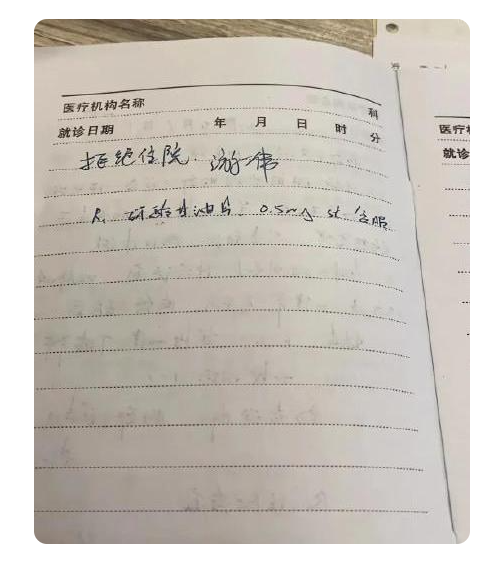 医疗机构名称 科
就诊日期 年 月 日 时 分
拒绝住院. 游伟
R. 硝酸甘油片 0.5mg st 含服
医疗
就诊